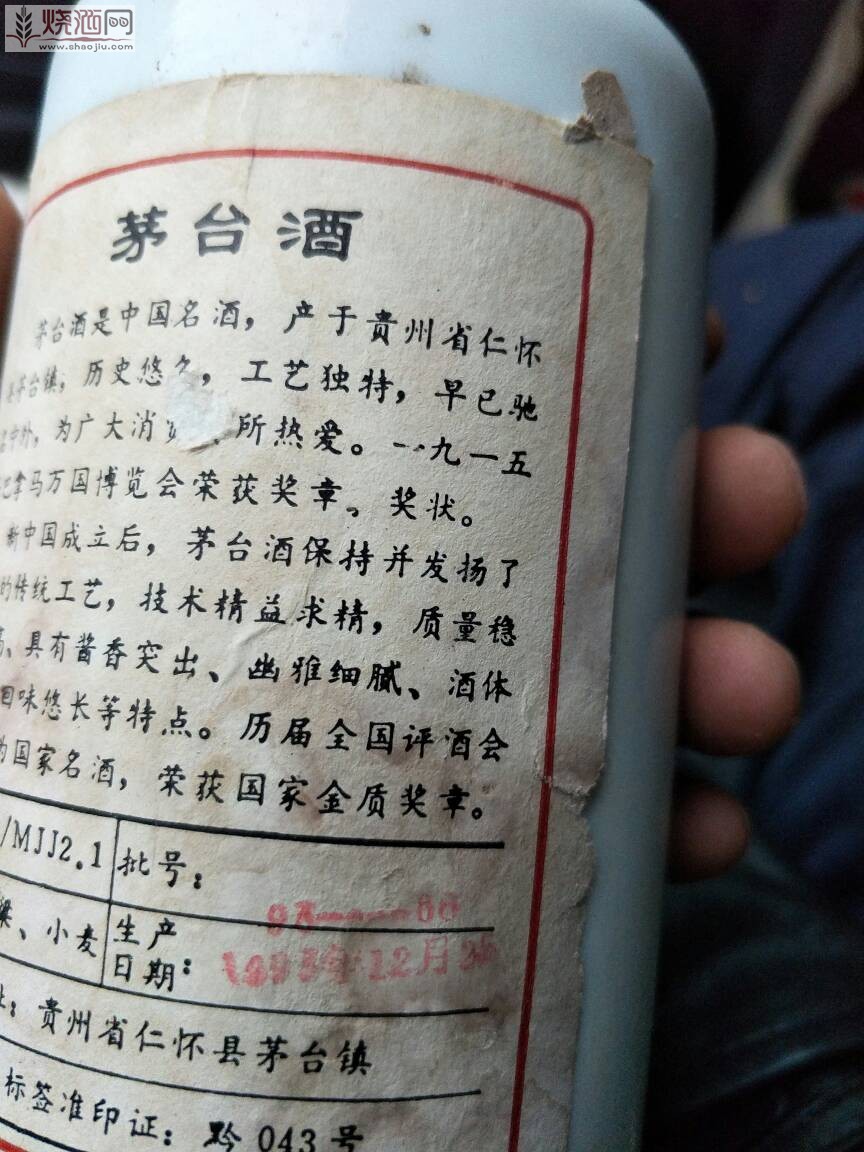 烧酒网
www.shaojiu.com
茅台酒
茅台酒是中国名酒，产于贵州省仁怀
茅台镇，历史悠久，工艺独特，早已驰
中外，为广大消 所热爱。一九一五
巴拿马万国博览会荣获奖章。奖状。
新中国成立后，茅台酒保持并发扬了
的传统工艺，技术精益求精，质量稳
高、具有酱香突出、幽雅细腻、酒体
回味悠长等特点。历届全国评酒会
为国家名酒，荣获国家金质奖章。
/MJJ2.1 批号：
、小麦 生产日期： 12月
：贵州省仁怀县茅台镇
标签准印证：黔043号